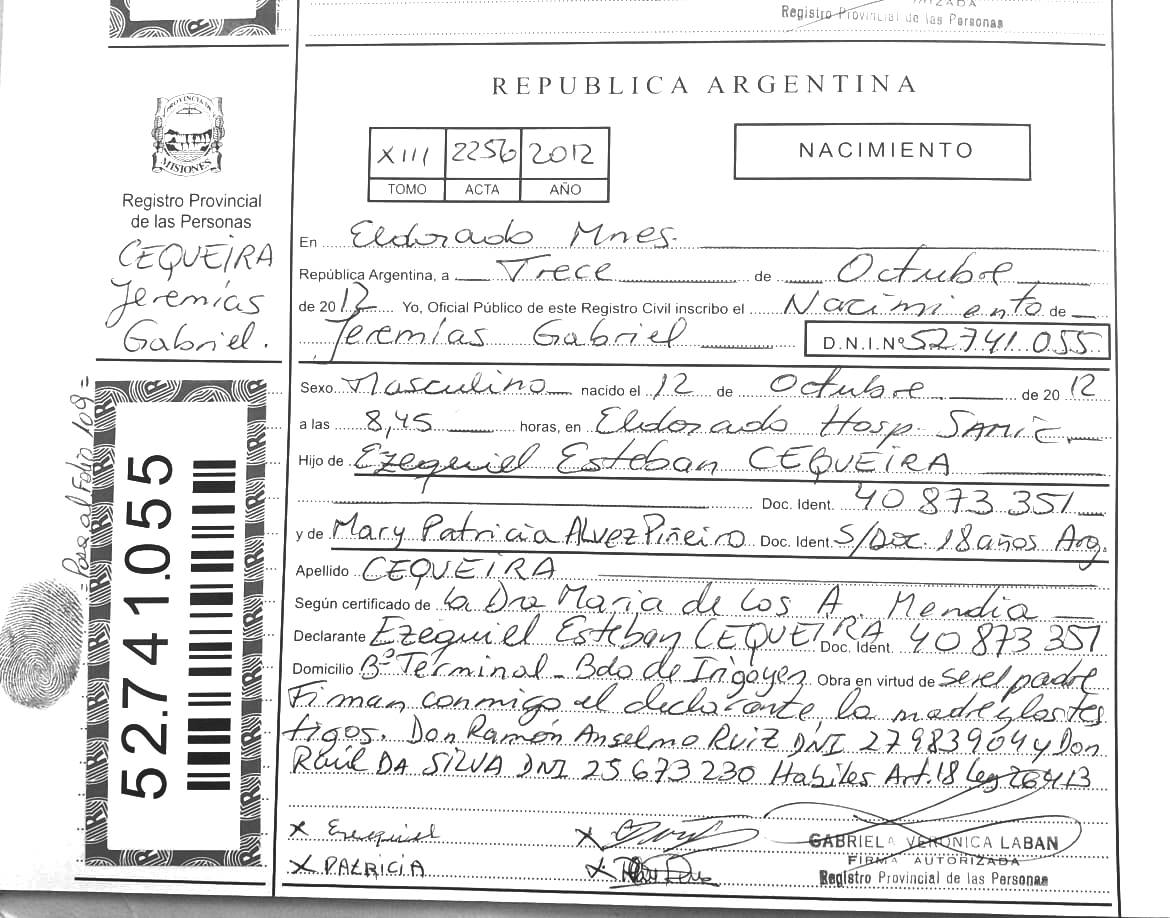 Registro Provincial de las Personas
REPUBLICA ARGENTINA
PROVINCIA DE
MISIONES
Registro Provincial
de las Personas
CEQUEIRA
Jeremías
Gabriel.
XIII 2256 2012
TOMO ACTA AÑO
NACIMIENTO
En Eldorado Mnes.
República Argentina, a Trece de Octubre
de 2012 Yo, Oficial Público de este Registro Civil inscribo el Nacimiento de
Jeremías Gabriel D.N.I.Nº 52.741.055
Sexo Masculino nacido el 12 de Octubre de 2012
a las 8,45 horas, en Eldorado Hosp. SAMIC
Hijo de Ezequiel Esteban CEQUEIRA
Doc. Ident. 40 873 351
y de Mary Patricia ALVEZ PIÑEIRO Doc. Ident. S/Doc. 18 años Arg.
Apellido CEQUEIRA
Según certificado de la Dra Maria de los A. Mendia
Declarante Ezequiel Esteban CEQUEIRA Doc. Ident. 40 873 351
Domicilio Bº Terminal - Bdo de Irigoyen Obra en virtud de ser el padre
Firman conmigo el declarante, la madre y los tes
tigos. Don Ramón Anselmo RUIZ DNI 27983964 y Don
Raúl DA SILVA DNI 25 673 230 Habiles Art. 18 Ley 26413
X Ezequiel X
X PATRICIA X
GABRIELA VERONICA LABAN
FIRMA AUTORIZADA
Registro Provincial de las Personas
= Pasa al Folio 109 =
52.741.055